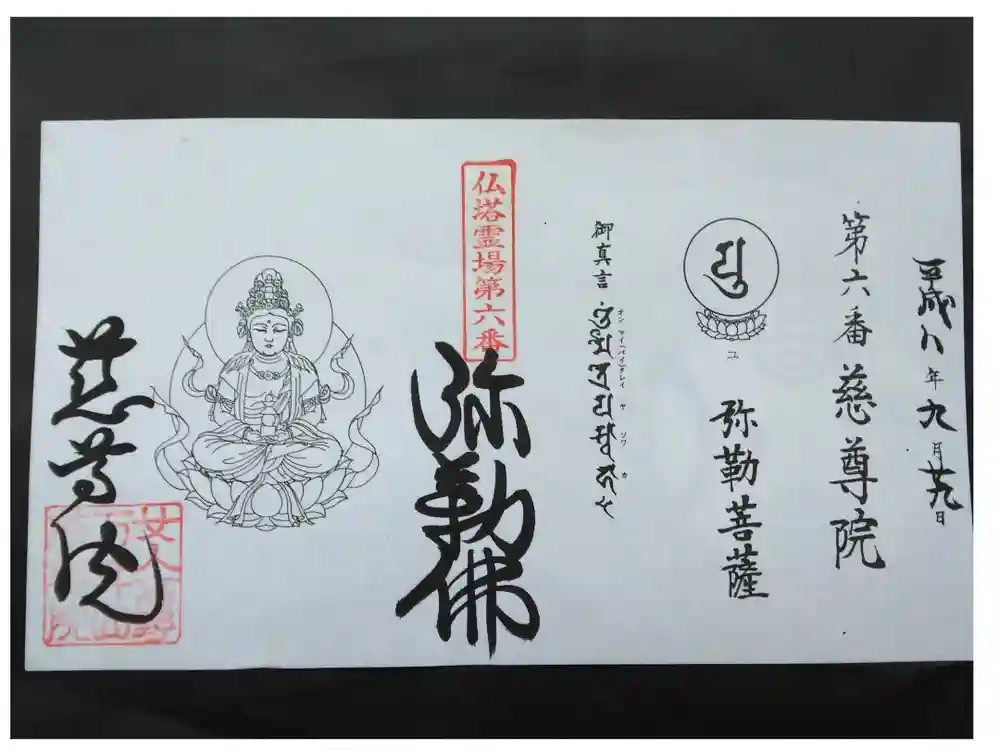 平成八年九月廿九日
第六番 慈尊院
ユ
弥勒菩薩
御真言
オン マイ(バイ)タレイ ヤ ソワ カ
仏塔霊場第六番
弥勒佛
慈尊院